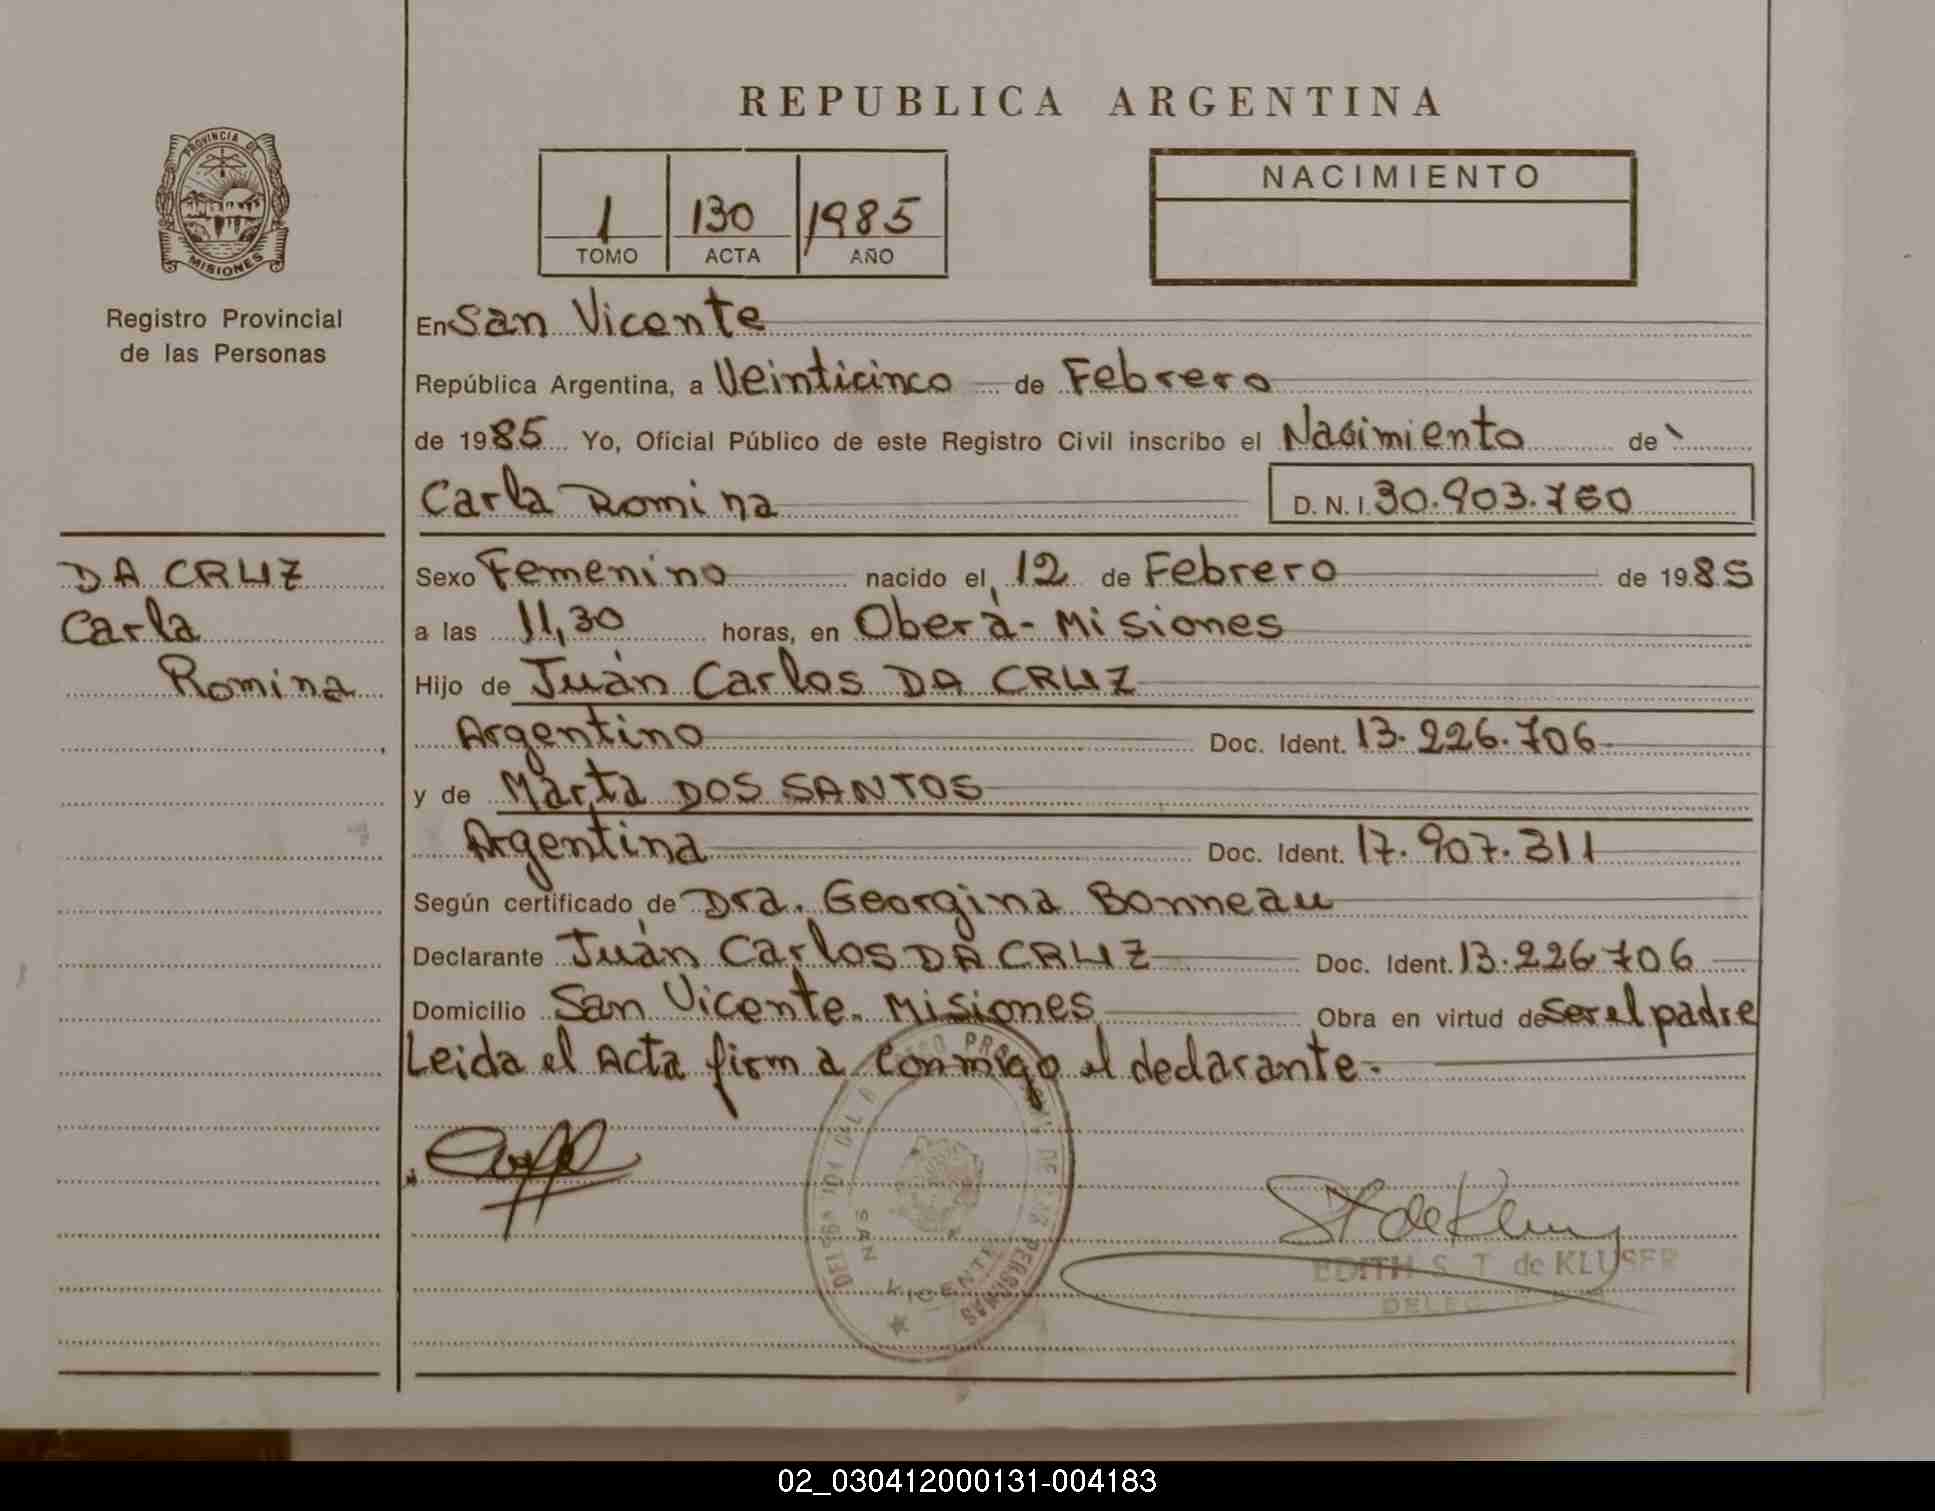 REPUBLICA ARGENTINA
PROVINCIA DE
MISIONES
Registro Provincial
de las Personas
1 130 1985
TOMO ACTA AÑO
NACIMIENTO
En San Vicente
República Argentina, a Veinticinco de Febrero
de 1985 Yo, Oficial Público de este Registro Civil inscribo el Nacimiento de
Carla Romina D. N. I. 30.903.760
DA CRUZ
Carla
Romina
Sexo Femenino nacido el 12 de Febrero de 1985
a las 11,30 horas, en Oberá - Misiones
Hijo de Juán Carlos DA CRUZ
Argentino Doc. Ident. 13.226.706
y de Marta DOS SANTOS
Argentina Doc. Ident. 17.907.311
Según certificado de Dra. Georgina Bonneau
Declarante Juán Carlos DA CRUZ Doc. Ident. 13.226.706
Domicilio San Vicente. Misiones Obra en virtud de ser el padre
Leida el Acta firma conmigo el declarante.
DE LAS PERSONAS
SAN VICENTE
EDITH S. T. de KLUSER
02_030412000131-004183